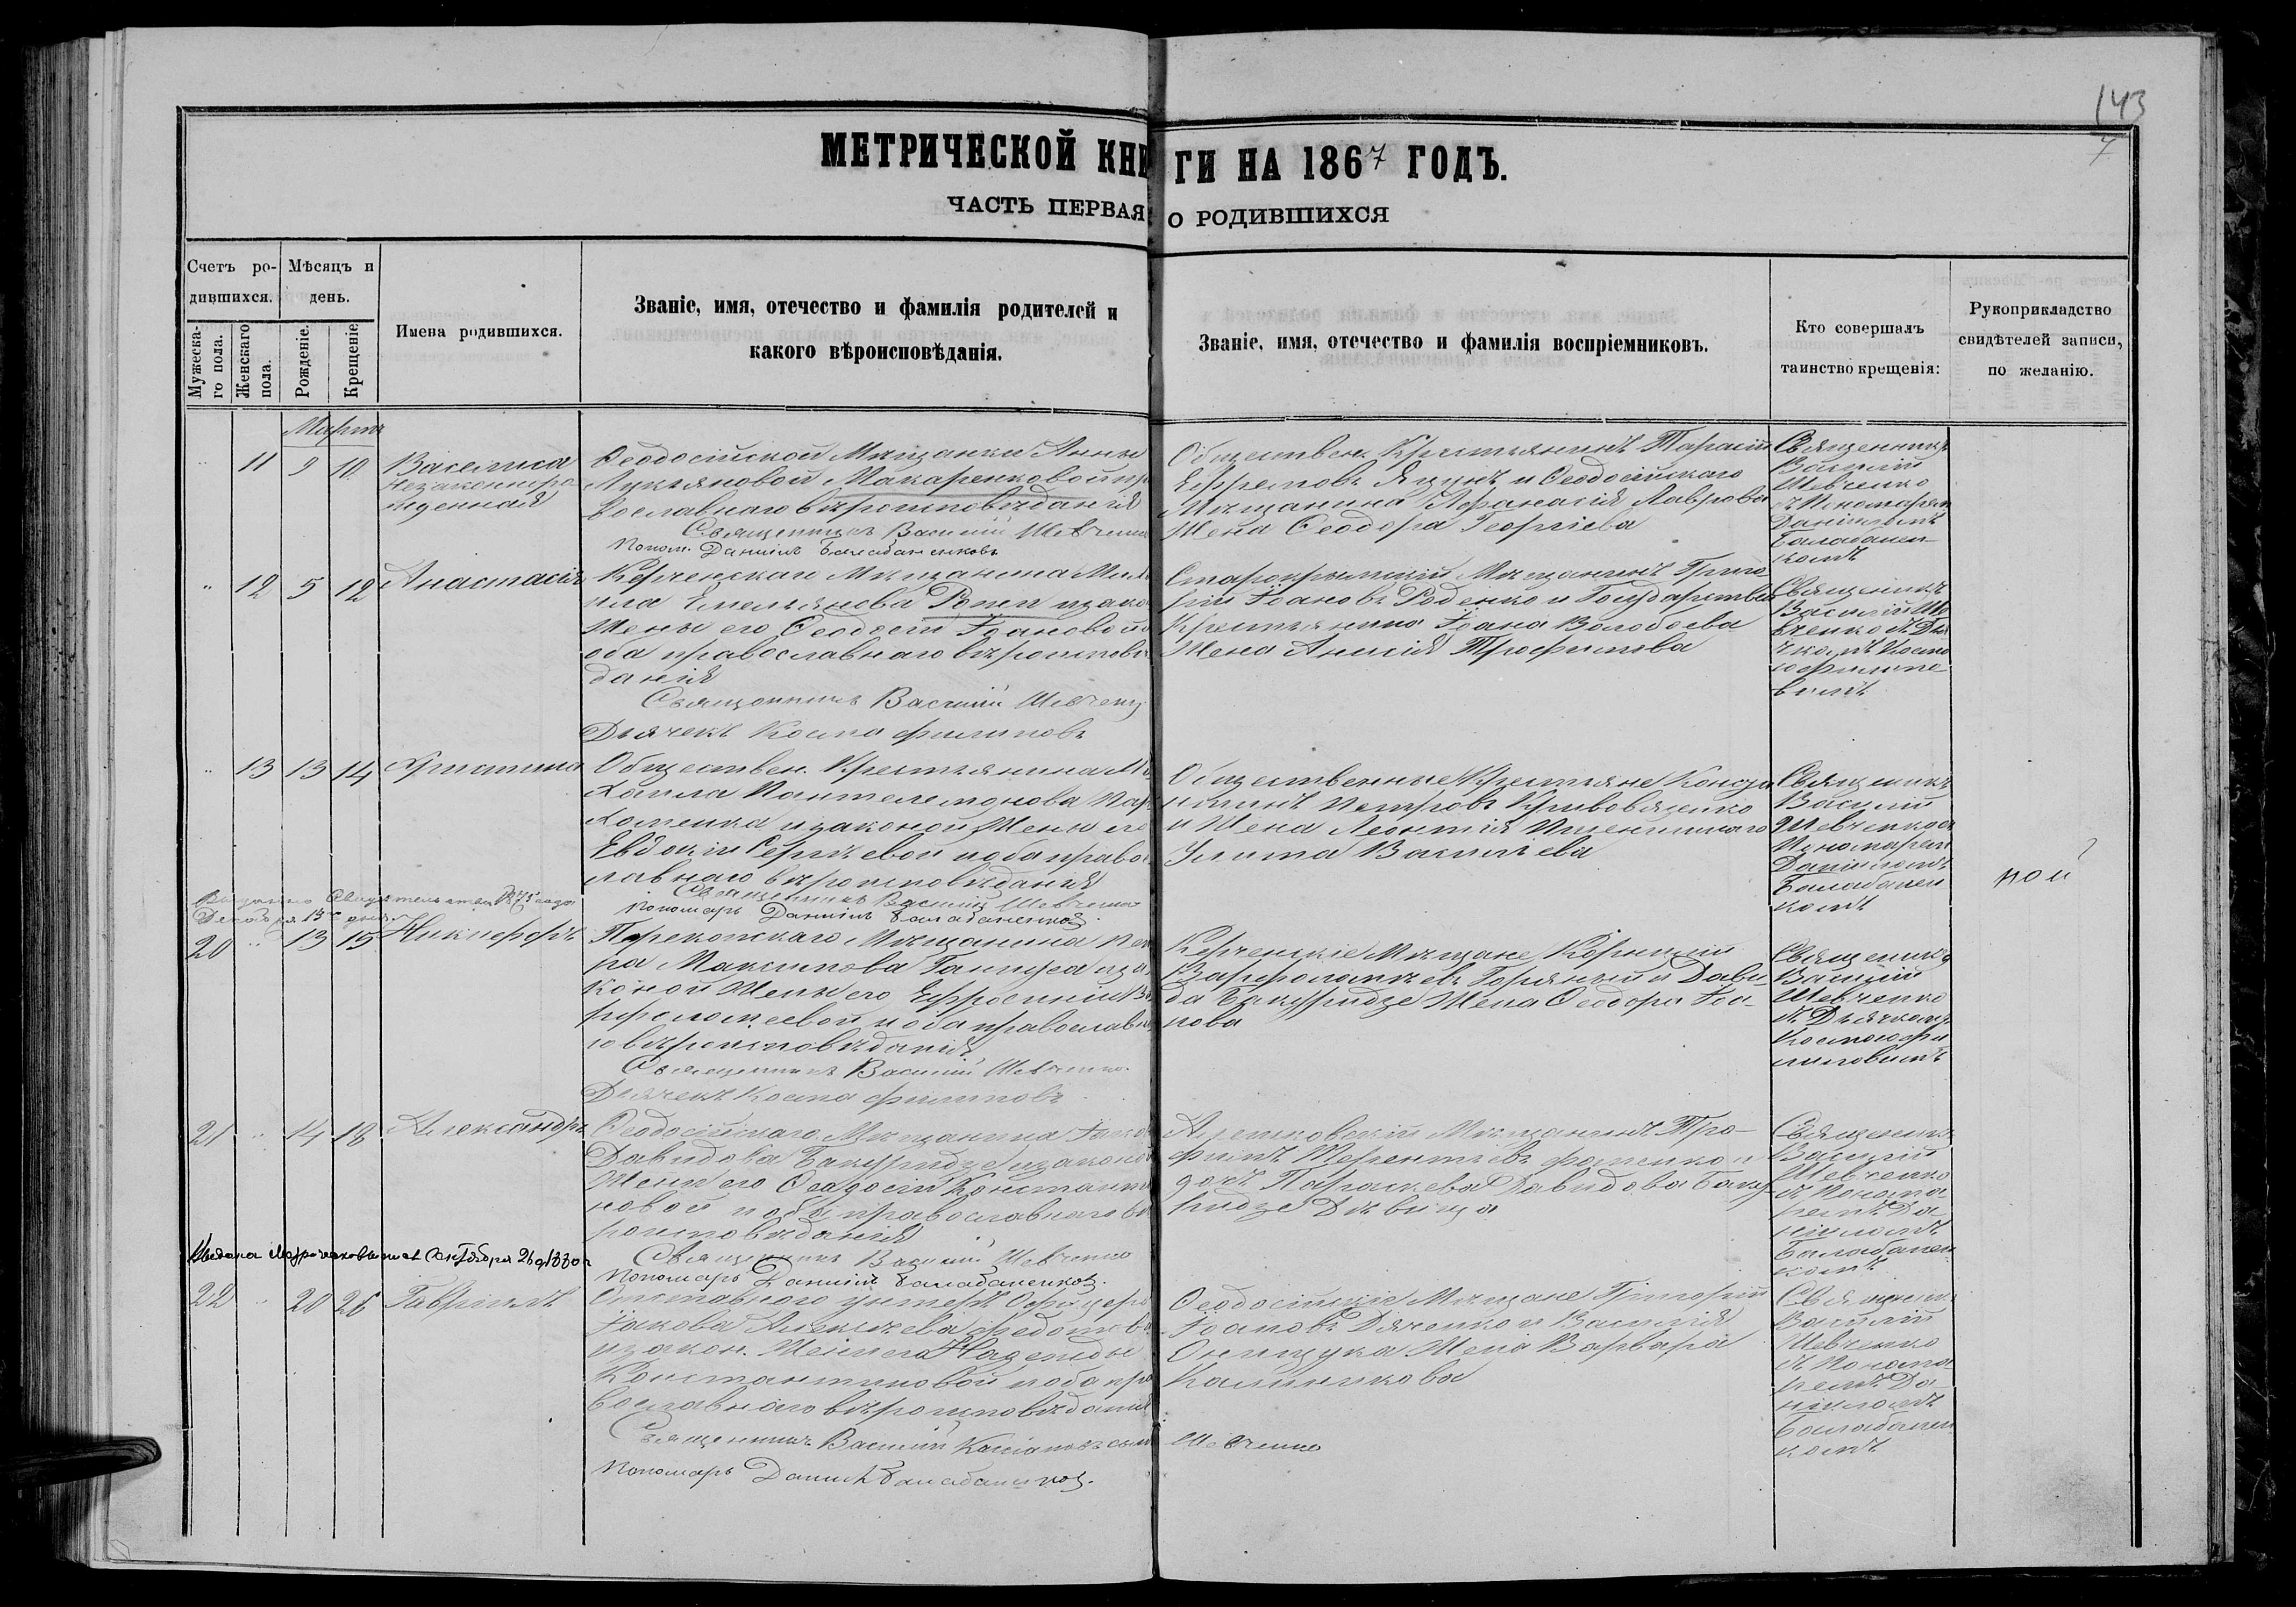 143
7
МЕТРИЧЕСКОЙ КНИГИ НА 1867 ГОДЪ.
ЧАСТЬ ПЕРВАЯ О РОДИВШИХСЯ
Счетъ родившихся.
Мужескаго пола.
Женскаго пола.
Мѣсяцъ и день.
Рожденіе.
Крещеніе
Имена родившихся.
Званіе, имя, отечество и фамилія родителей и
какого вѣроисповѣданія.
Званіе, имя, отечество и фамилія воспріемниковъ.
Кто совершалъ
таинство крещенія:
Рукоприкладство
свидѣтелей записи,
по желанію.
Мартъ
" 11 9 10 Василиса
незаконнро
жденная
Ѳеодосійской Мѣщанки Анны
Лукьяновой Макаренковой пр
вославнаго вѣроисповѣданія
Священникъ Василій Шевченко
Поном. Даніилъ Балабаненковъ
Обществен. Крестьянинъ Тарасій
Ефремовъ Яцунъ и Ѳеодосійскаго
Мѣщанина Аѳанасія Лаврова
Жена Ѳеодора Георгіева
Священникъ
Василій
Шевченко
съ Пономаремъ
Даніиломъ
Балабанен-
комъ
" 12 5 12 Анастасія
Керченскаго Мѣщанина
Емельянова Репеп изако
Жены его Ѳеодосіи Іоановой
оба православнаго вѣроисповѣ
данія
Священникъ Василій Шевченко
Дьячекъ Косма Филиповъ
Старокрымскій Мѣщанинъ Григо-
рій Іоановъ Роденко и Государствен
Крестьянина Іоана Волобоева
Жена Анисія Трофимова
Священникъ
Василій Ше
вченко съ Дья
чкомъ Космо
ю Филипо-
вымъ
" 13 13 14 Христина
Обществен. Крестьянина Ми
хаила Пантелемонова Пар
хоменка изаконой Жены его
Евдокіи Сергѣевой и оба право
славнаго вѣроисповѣданія
Священникъ Василій Шевченко
Пономарь Даніилъ Балабаненковъ.
Общественные Крестьяне Конста
нтинъ Петровъ Кривовященко
и Жена Леонтія Пшеничнаго
Улита Васильева
Священникъ
Василій
Шевченко съ
Пономаремъ
Даніиломъ
Балабанен
комъ
Выдано Свидѣтельство 1875 года
Декабря 15 дня
20 " 13 15 Никифоръ
Перекопскаго Мѣщанина Пет
ра Максимова Ганжа иза
коной Жены его Ефросиніи Ва
рфоломеевой и оба православна
го вѣроисповѣданія
Священникъ Василій Шевченко.
Дьячекъ Косма Филиповъ
Керченскіе Мѣщане Корнилій
Варфоломѣевъ Горяный и Дави-
да Бакуридзе Жена Ѳеодора Іоа-
нова
Священникъ
Василій
Шевченко
съ Дьячкомъ
Космою Фи
липовымъ
21 " 14 18 Александръ
Ѳеодосійскаго Мѣщанина Іако
Давидова Бакуридзе изаконой
Жены его Ѳеодосіи Константи
новой и оба православнаго вѣ
роисповѣданія
Священникъ Василій Шевченко
Пономарь Даніилъ Балабаненковъ.
Алешковскій Мѣщанинъ Тро-
фимъ Терентьевъ Фоменко и
дочь Параскева Давидова Баку-
ридзе Дѣвица
Священникъ
Василій
Шевченко
съ Понома-
ремъ Да-
ніиломъ
Балабанен
комъ
22 " 20 26 Гавріилъ
Отставного Унтеръ Офицера
Іакова Алексѣева Федотова
изакон. Жены его Надежды
Константиновой и оба пра
вославнаго вѣроисповѣданія
Священникъ Василій Кассіановъ сынъ Шевченко
Пономарь Даніилъ Балабаненковъ.
Ѳеодосійскіе Мѣщане Григорій
Іоановъ Дяченко и Василія
Онищука Жена Варвара
Калиникова
Священник
Василій
Шевченко
съ Понома-
ремъ Да-
ніиломъ
Балабанен
комъ